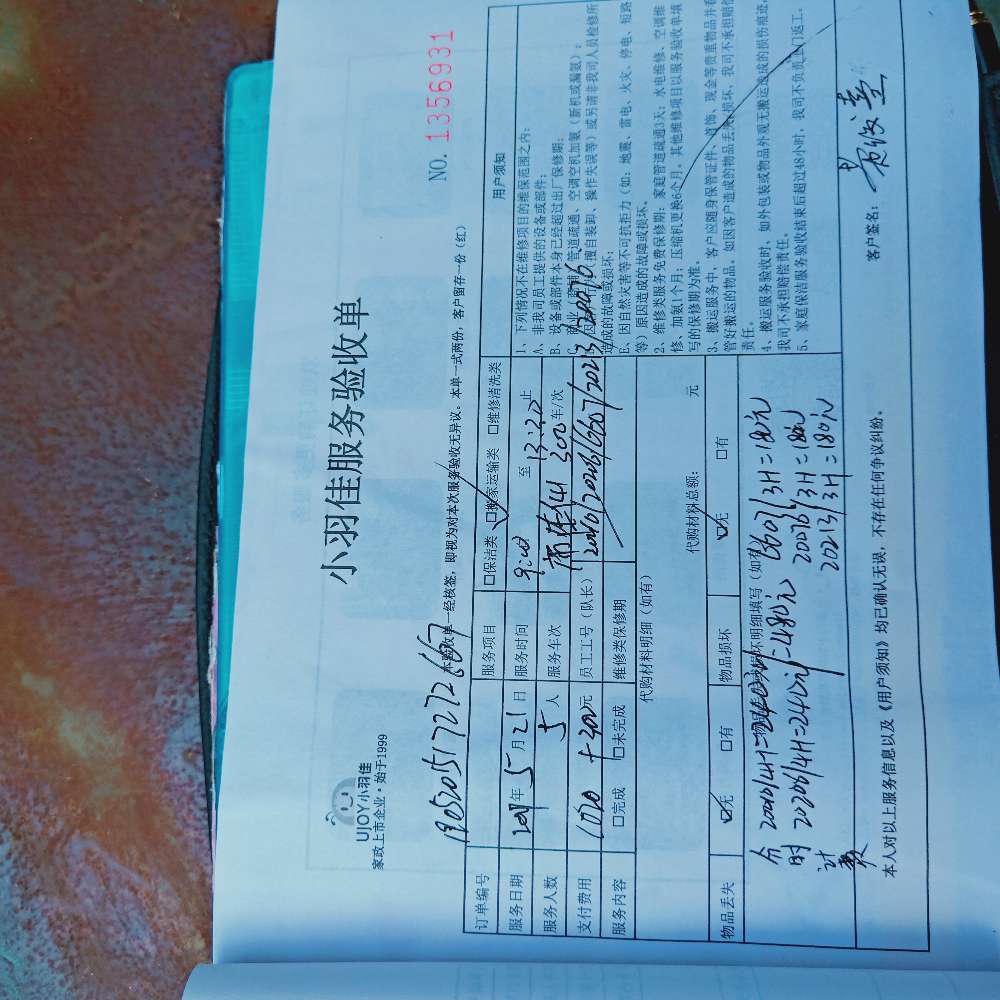 UJOY小羽佳
家政上市企业·始于1999
小羽佳服务验收单
NO. 1356931
本验收单一经核签，即视为对本次服务验收无异议。本单一式两份，客户留存一份（红）
订单编号 19052051727266607
服务项目 □保洁类 ☑搬家运输类 □维修清洗类
服务日期 2019年5月21日
服务时间 9:00 至 13:20 止
服务人数 5人
服务车次 300车/次
支付费用 1020+300元
员工工号（队长） 20010/20206/16607/20213/20076
服务内容 □完成 □未完成
维修类保修期
代购材料明细（如有）
代购材料总额： 元
物品丢失 ☑无 □有
物品损坏 ☑无 □有
物品丢失或损坏明细填写（如有）
分时计费
20010/4H=240元 16607/3H=180元
20206/4H=240元=480元 20076/3H=180元
20213/3H=180元
用户须知
1、下列情况不在维修项目的维保范围之内：
A、非我司员工提供的设备或部件；
B、设备或部件本身已经超过出厂保修期；
C、商业（商铺）管道疏通、空调空机加氨（新机或漏氨）；
（擅自装卸、操作失误等）或另请非我司人员检修所
造成的故障或损坏；
E、因自然灾害等不可抗拒力（如：地震、雷电、火灾、停电、短路
等）原因造成的故障或损坏。
2、维修类服务免费保修期：家庭管道疏通3天；水电维修、空调维
修、加氨1个月；压缩机更换6个月，其他维修项目以服务验收单填
写的保修期为准。
3、搬运服务中，客户应随身保管证件、首饰、现金等贵重物品并看
管好搬运的物品。如因客户造成的物品丢失、损坏，我司不承担赔偿
责任。
4、搬运服务验收时，如外包装或物品外观无搬运造成的损伤痕迹，
我司不承担赔偿责任。
5、家庭保洁服务验收结束后超过48小时，我司不负责上门返工。
本人对以上服务信息以及《用户须知》均已确认无误，不存在任何争议纠纷。
客户签名：